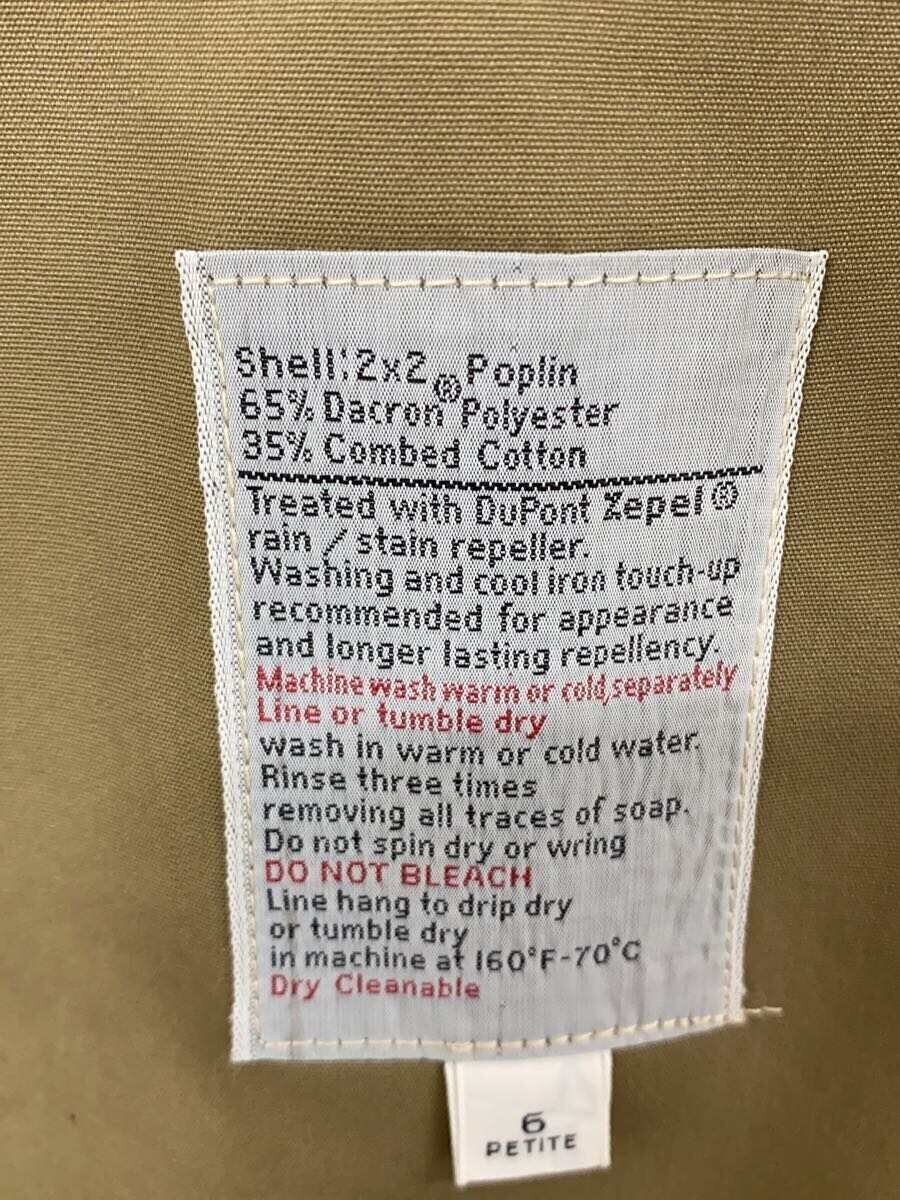 Shell: 2x2 Poplin
65% Dacron® Polyester
35% Combed Cotton
Treated with DuPont Zepel®
rain / stain repeller.
Washing and cool iron touch-up
recommended for appearance
and longer lasting repellency.
Machine wash warm or cold, separately
Line or tumble dry
wash in warm or cold water.
Rinse three times
removing all traces of soap.
Do not spin dry or wring
DO NOT BLEACH
Line hang to drip dry
or tumble dry
in machine at 160°F-70°C
Dry Cleanable
6
PETITE